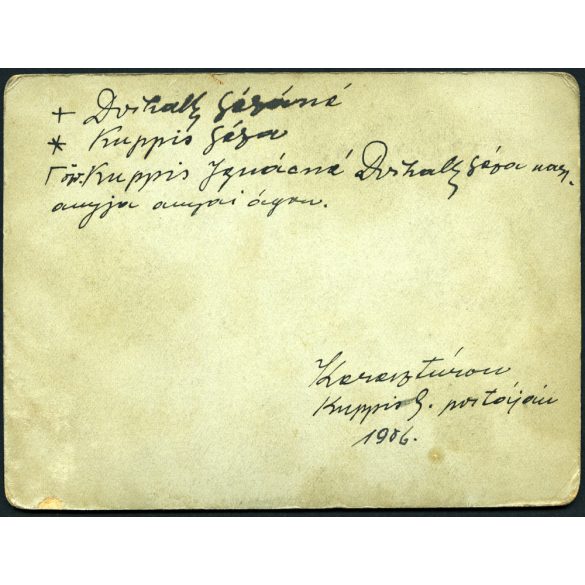 + Dvihally Gézáné
* Kuppis Géza
Γ öz. Kuppis Ignácné Dvihally Géza nagy
anyja anyai ágon.
Kereszturon
Kuppis G. portáján
1906.